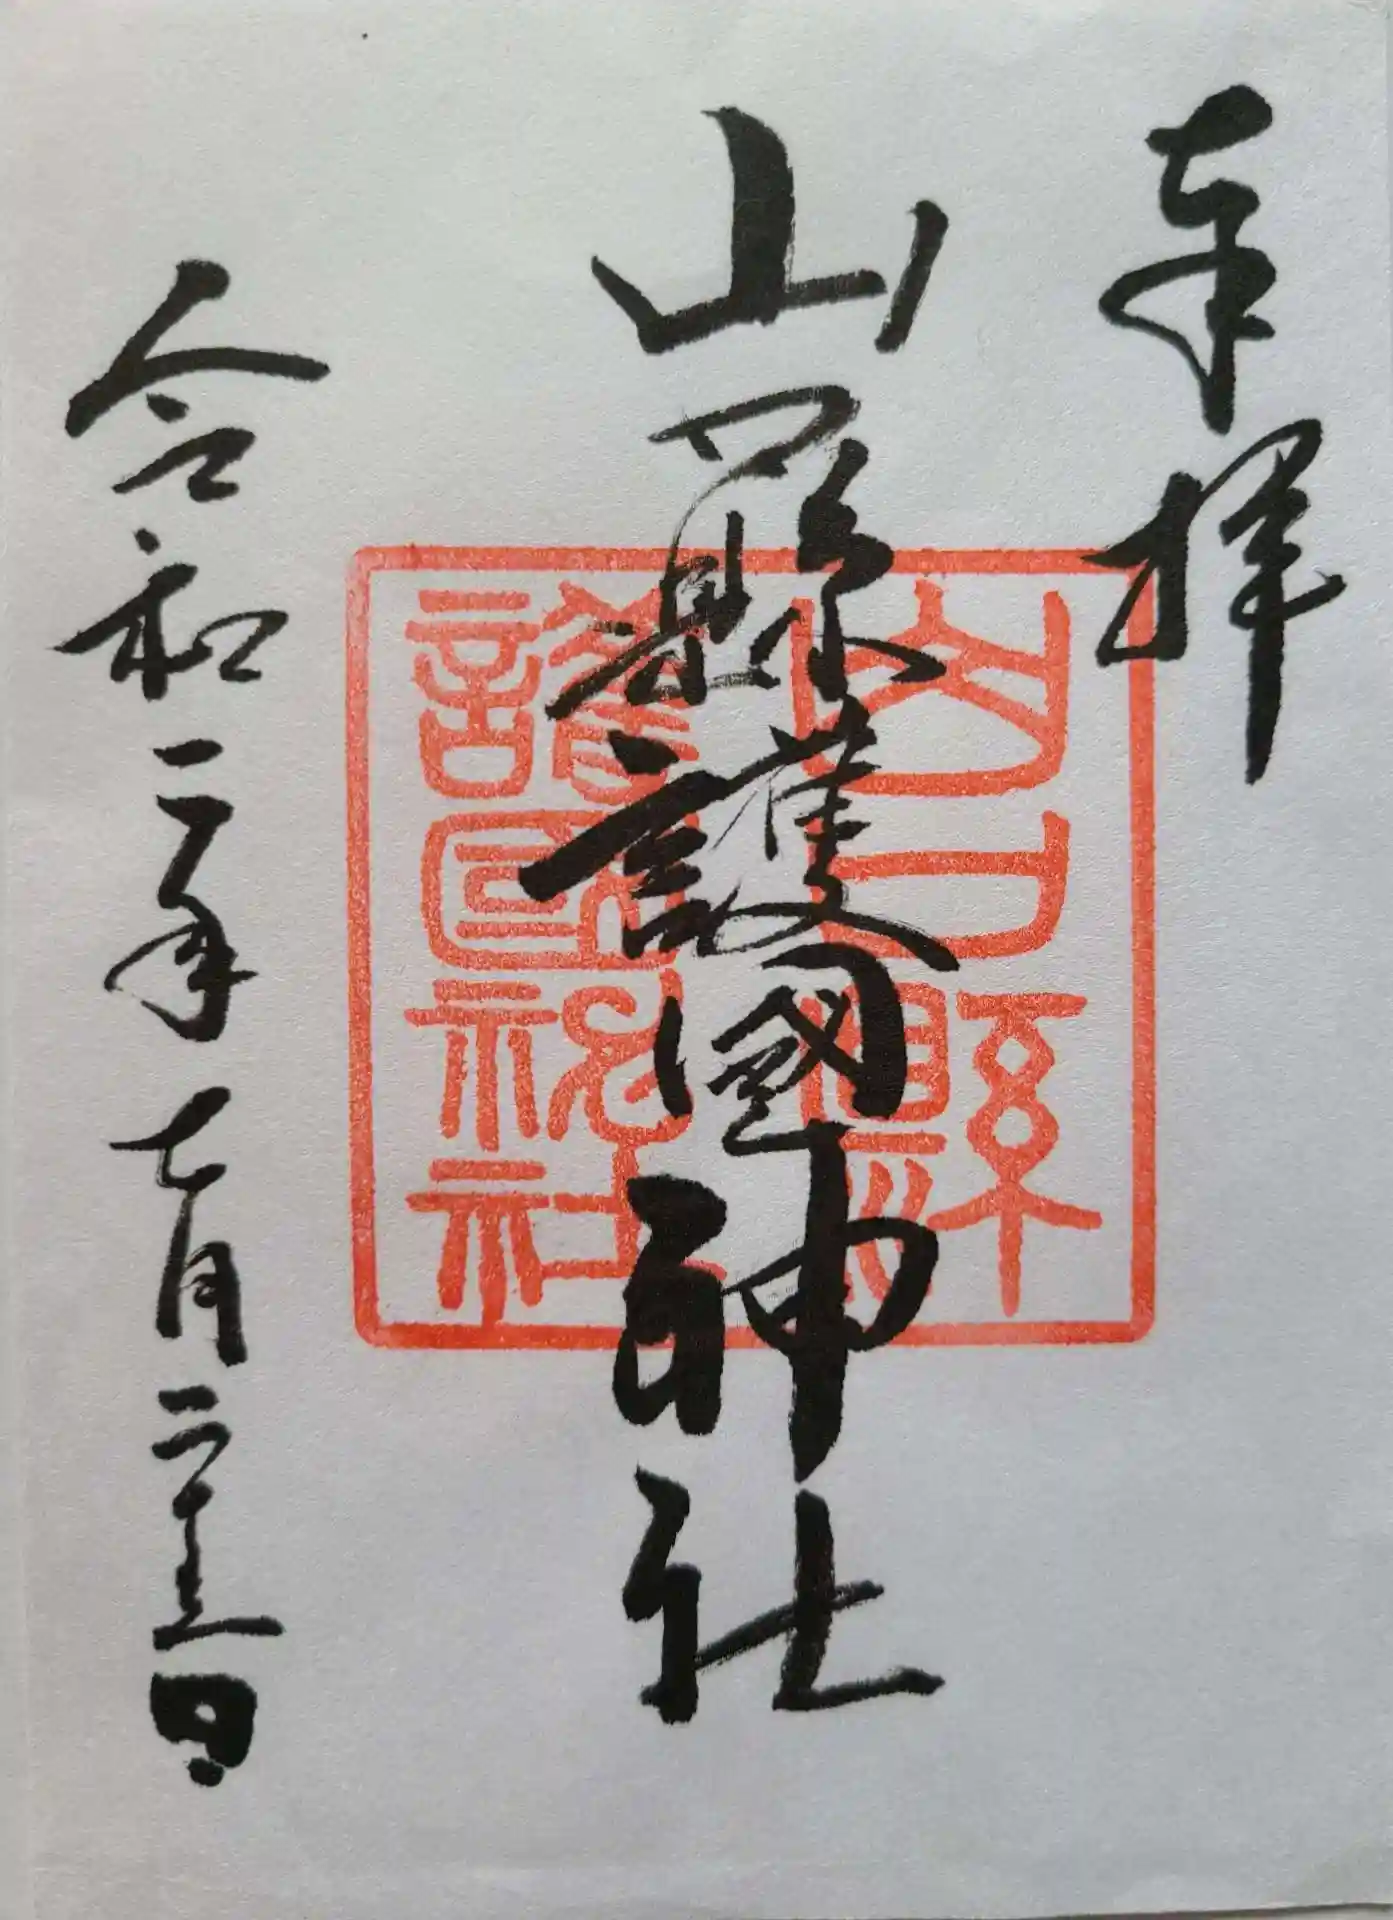 奉拝
山口縣護國神社
令和二年七月二十五日
山口縣
護國神社